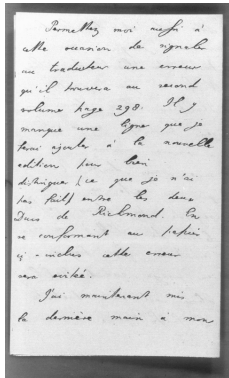 Permettez moi aussi à
cette occasion de signaler
au traducteur une erreur
qu'il trouvera au second
volume page 298: Il y
manque une ligne que je
ferai ajouter à la nouvelle
edition pour bien
distingue (ce que je n'ai
pas fait) entre les deux
Ducs de Richmond. En
se conformant au papier
ci-inclus cette erreur
sera evitée.
J'ai maintenant mis
la dernière main à mon